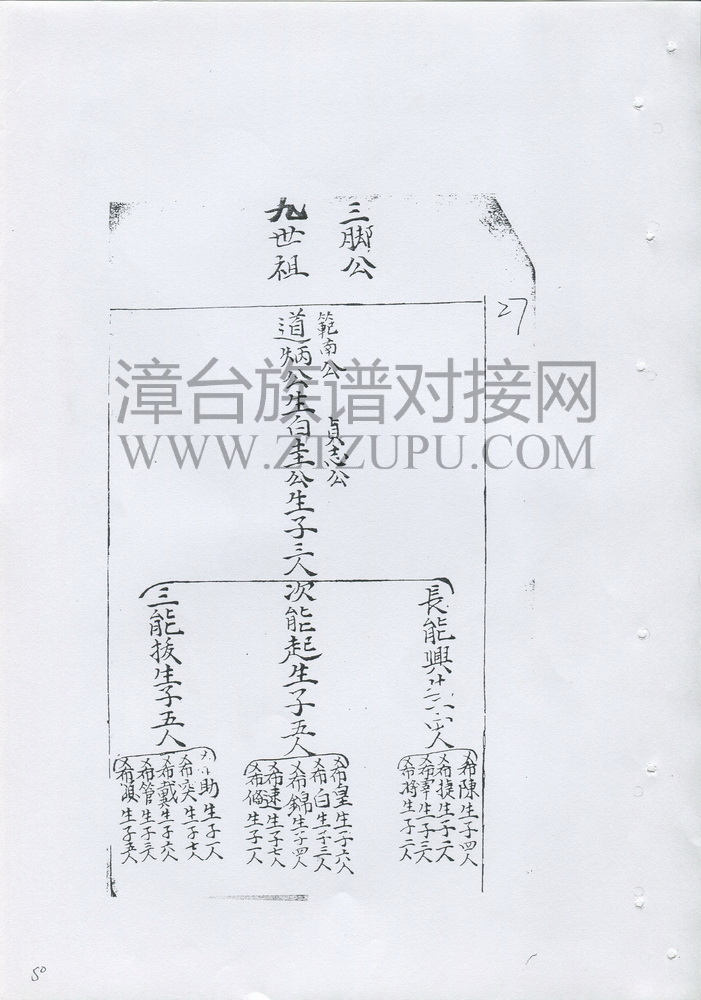 三腳公
九世祖
27
範南公
貞志公
道炳公生白圭公生子三人
長能興
人
次能起生子五人
三能拔生子五人
希陳生子四人
希捷生子二人
希宰生子三人
希將生子二人
希皇生子六人
希白生子三人
希錦生子四人
希速生子七人
希修生子一人
助生子一人
希奕生子七人
希戴生子六人
希管生子三人
希浿生子五人
漳台族谱对接网
WWW.ZTZUPU.COM
50